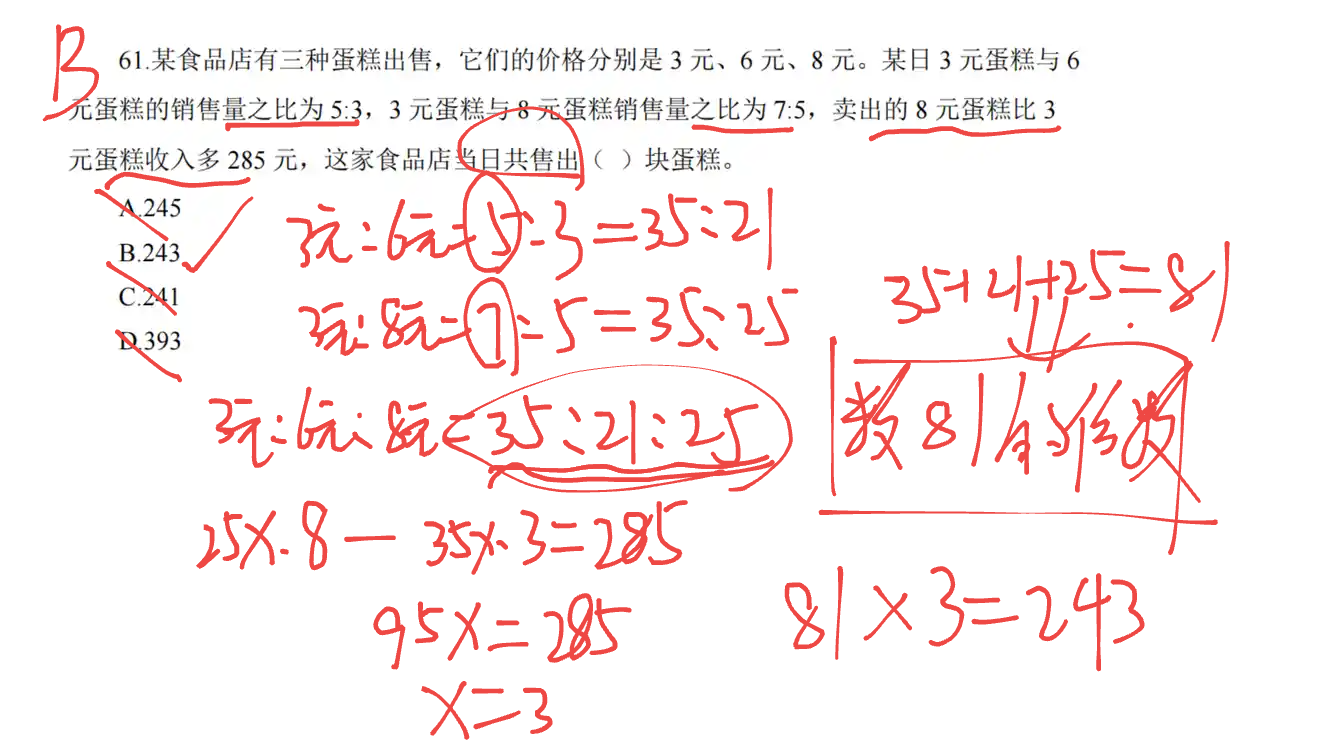 B
61.某食品店有三种蛋糕出售，它们的价格分别是 3 元、6 元、8 元。某日 3 元蛋糕与 6
元蛋糕的销售量之比为 5:3，3 元蛋糕与 8 元蛋糕销售量之比为 7:5，卖出的 8 元蛋糕比 3
元蛋糕收入多 285 元，这家食品店当日共售出（ ）块蛋糕。
A.245
B.243
C.241
D.393
3元:6元=5:3=35:21
3元:8元=7:5=35:25
3元:6元:8元=35:21:25
25x·8-35x·3=285
95x=285
x=3
35+21+25=81
数81的倍数
81×3=243